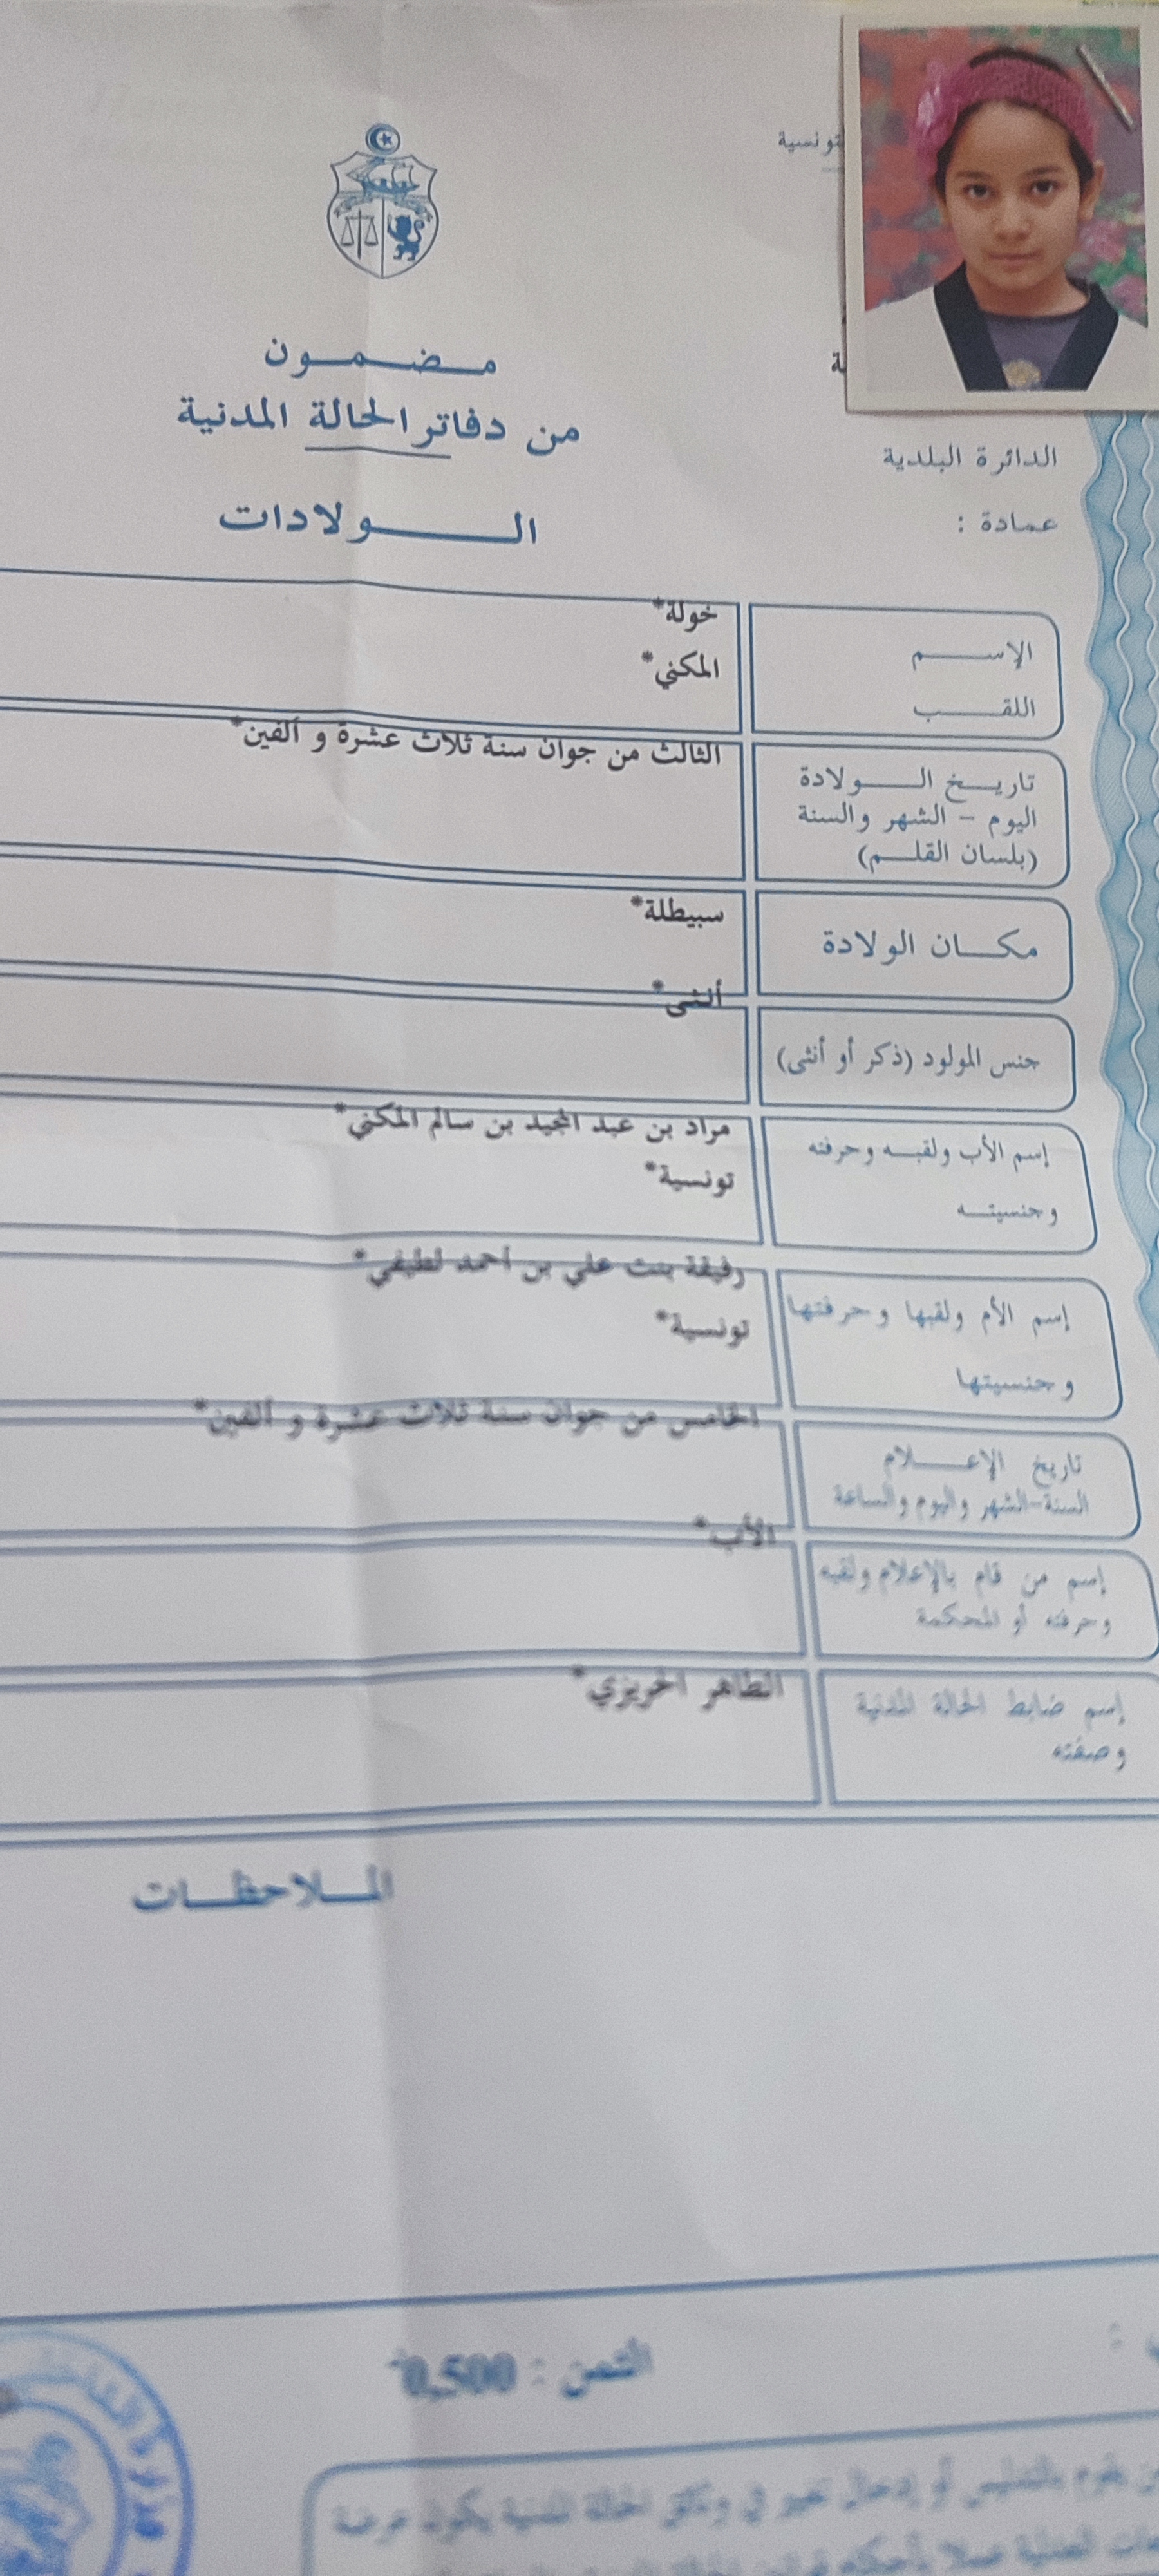 تونسية
مـضـمـون
من دفاتر الحالة المدنية
الـولادات
الدائرة البلدية
عمادة :
الإسـم
خولة*
اللقـب
المكني*
تاريـخ الـولادة
اليوم - الشهر والسنة
(بلسان القلـم)
الثالث من جوان سنة ثلاث عشرة و ألفين*
مكـان الولادة
سبيطلة*
جنس المولود (ذكر أو أنثى)
أنثى*
إسم الأب ولقبـه وحرفته
وجنسيتـه
مراد بن عبد المجيد بن سالم المكني*
تونسية*
إسم الأم ولقبها وحرفتها
وجنسيتها
رفيقة بنت علي بن أحمد لطيفي*
تونسية*
تاريخ الإعـلام
السنة-الشهر واليوم والساعة
الخامس من جوان سنة ثلاث عشرة و ألفين*
إسم من قام بالإعلام ولقبه
وحرفته أو المحكمة
الأب*
إسم ضابط الحالة المدنية
وصفته
الطاهر الحريزي*
المـلاحظـات
الثمن : 0,500
يقوم بالتدليس أو إدخال تغيير في وثائق الحالة المدنية يكون عرضة